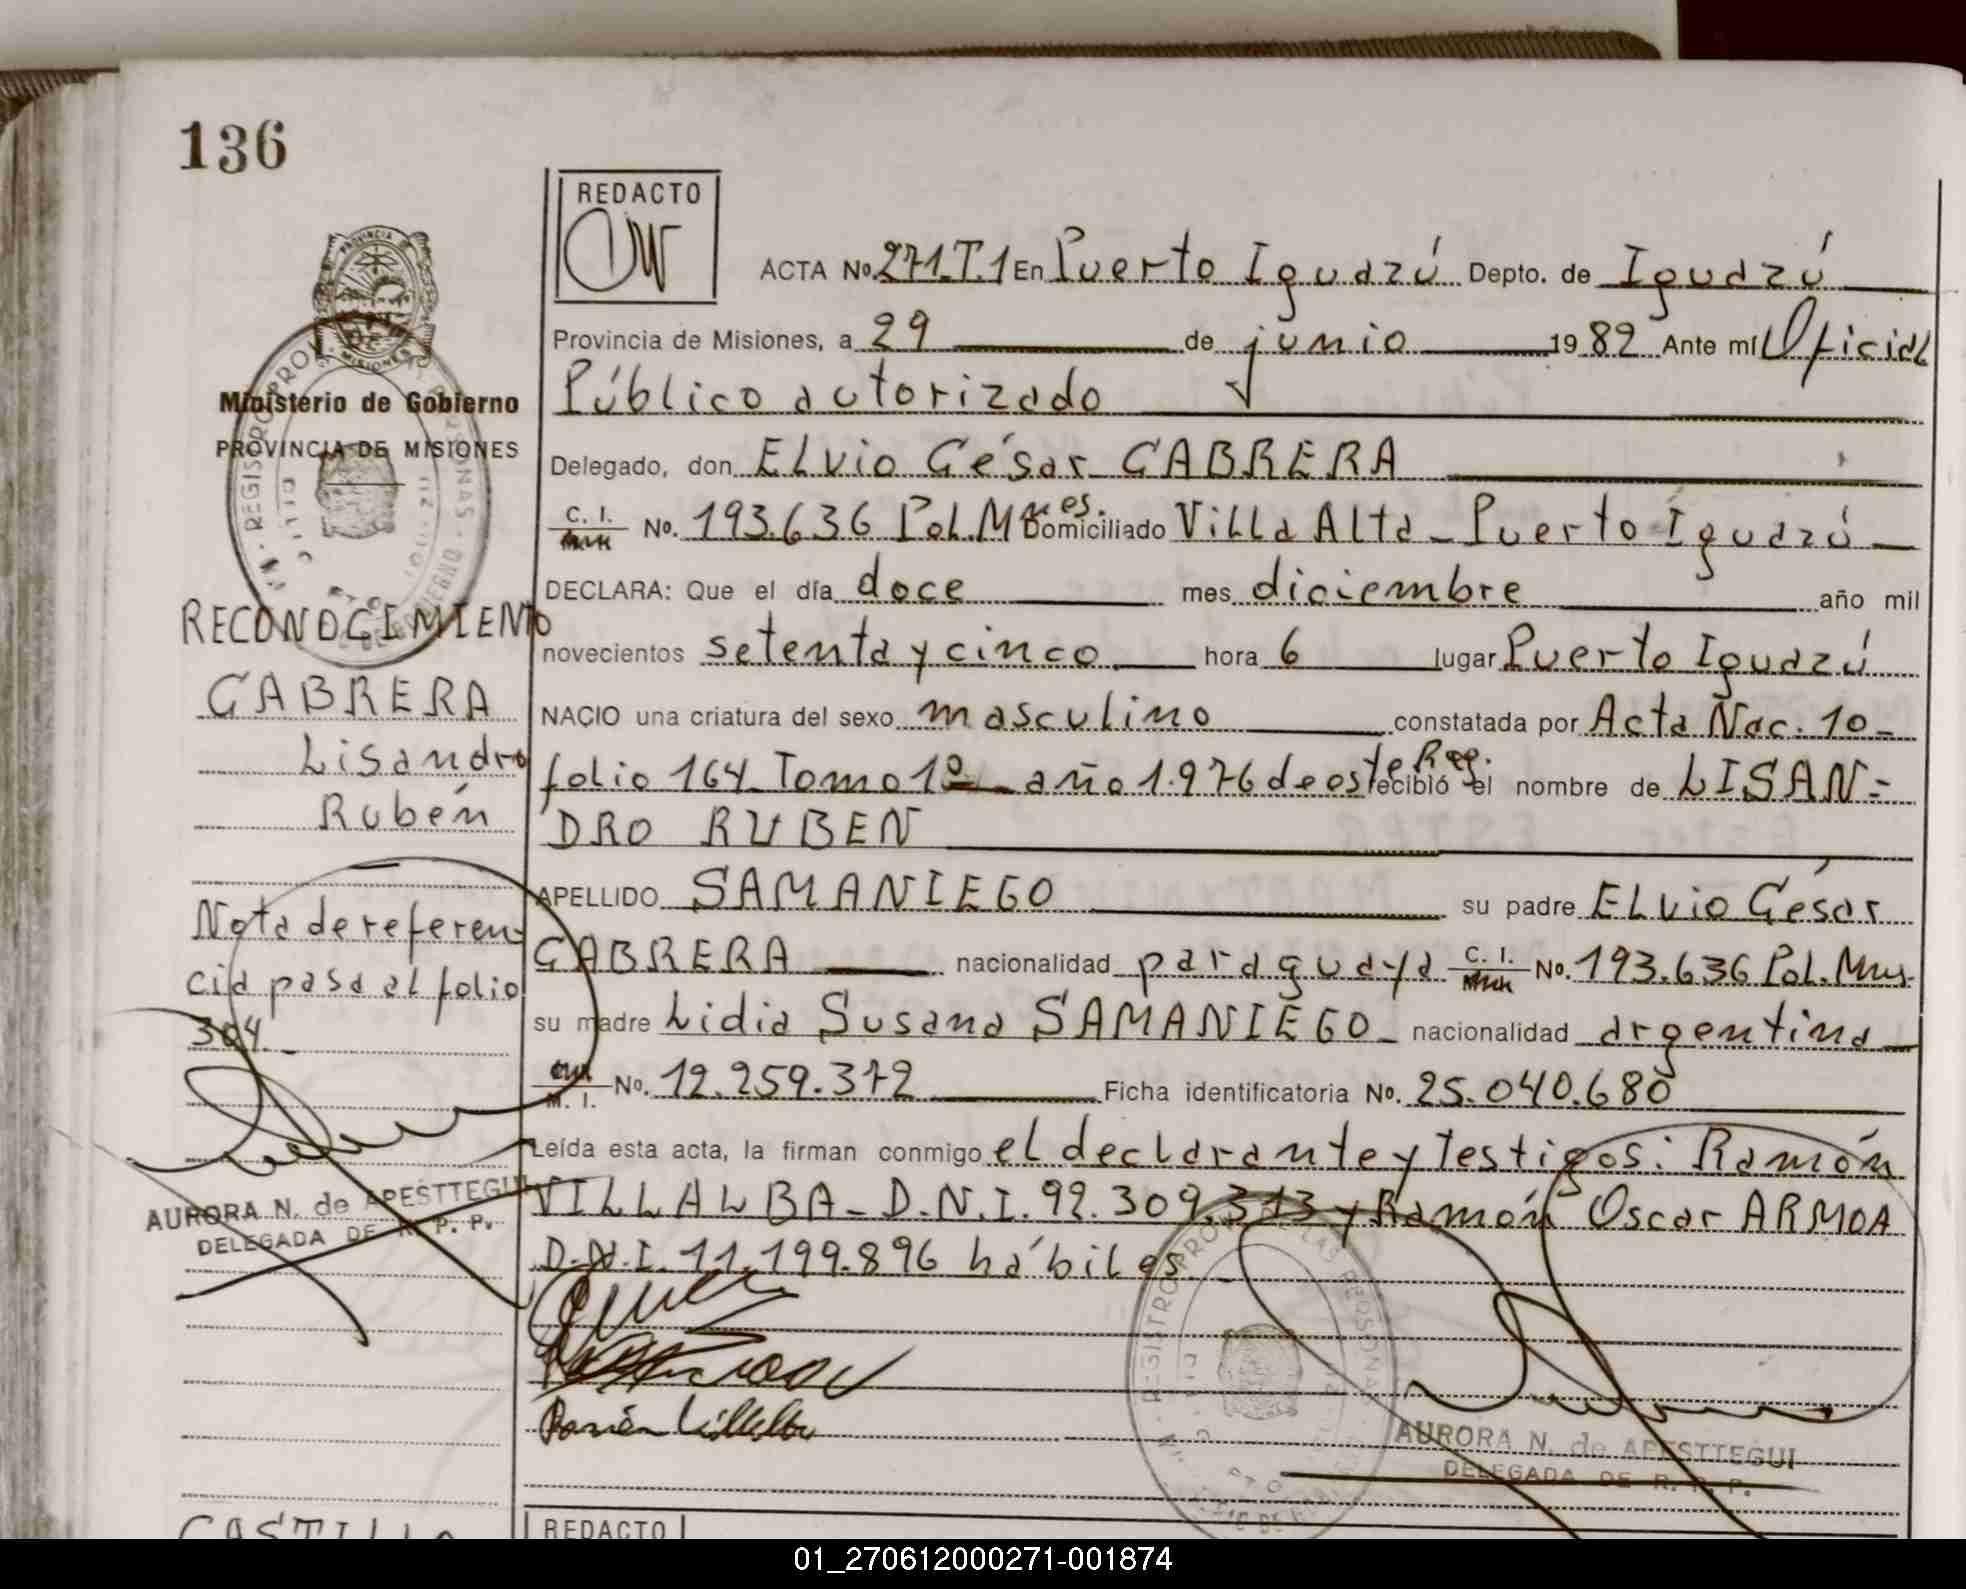 136
REDACTO
ACTA No. 271.T.1 En Puerto Iguazú Depto. de Iguazú
Provincia de Misiones, a 29 de junio 1982 Ante mí Oficial
Público autorizado
Ministerio de Gobierno
PROVINCIA DE MISIONES
Delegado, don ELvio César CABRERA
C. I. No. 193.636 Pol.Mnes. Domiciliado Villa Alta - Puerto Iguazú
DECLARA: Que el día doce mes diciembre año mil
novecientos setenta y cinco hora 6 lugar Puerto Iguazú
NACIO una criatura del sexo masculino constatada por Acta Nac. 10-
folio 164 Tomo 1º - año 1.976 de este Reg. recibió el nombre de LISAN=
DRO RUBEN
APELLIDO SAMANIEGO su padre ELvio César
CABRERA nacionalidad paraguaya C. I. No. 193.636 Pol. Mns.
su madre Lidia Susana SAMANIEGO - nacionalidad argentina
M. I. No. 12.259.372 Ficha identificatoria No. 25.040.680
Leída esta acta, la firman conmigo el declarante y testigos: Ramón
VILLALBA - D.N.I. 92.309.313 y Ramón Oscar ARMOA
D.N.I. 11.199.896 hábiles
RECONOCIMIENTO
CABRERA
Lisandro
Rubén
Nota de referen-
cia pasa al folio
304.-
AURORA N. de APESTTEGUI
DELEGADA DE R. P. P.
Ramón Villalba
AURORA N. de APESTTEGUI
DELEGADA DE R. P. P.
CASTILLO
REDACTO
01_270612000271-001874